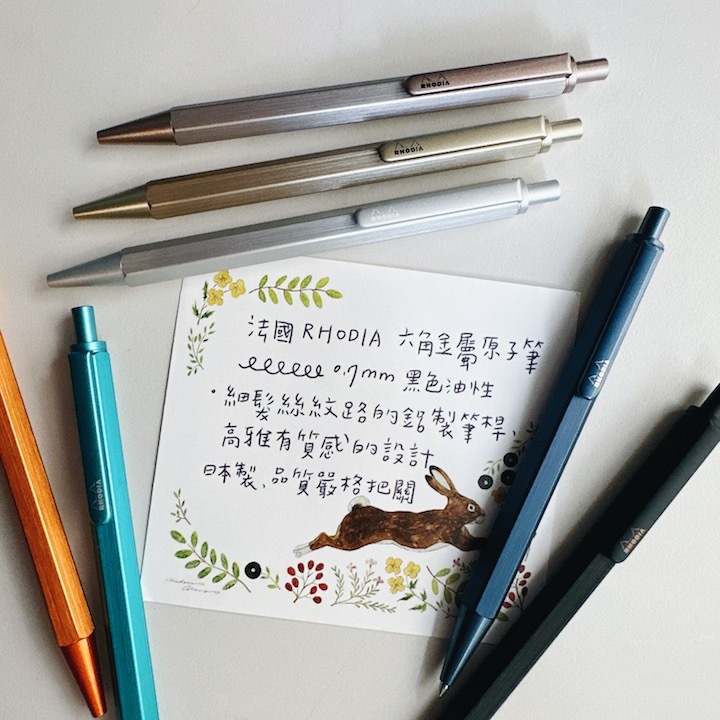 RHODIA
RHODIA
RHODIA
法國 RHODIA 六角金屬原子筆
0.7mm 黑色油性
・細髮絲紋路的鋁製筆桿、
高雅有質感的設計
日本製、品質嚴格把關
RHODIA
RHODIA
RHODIA